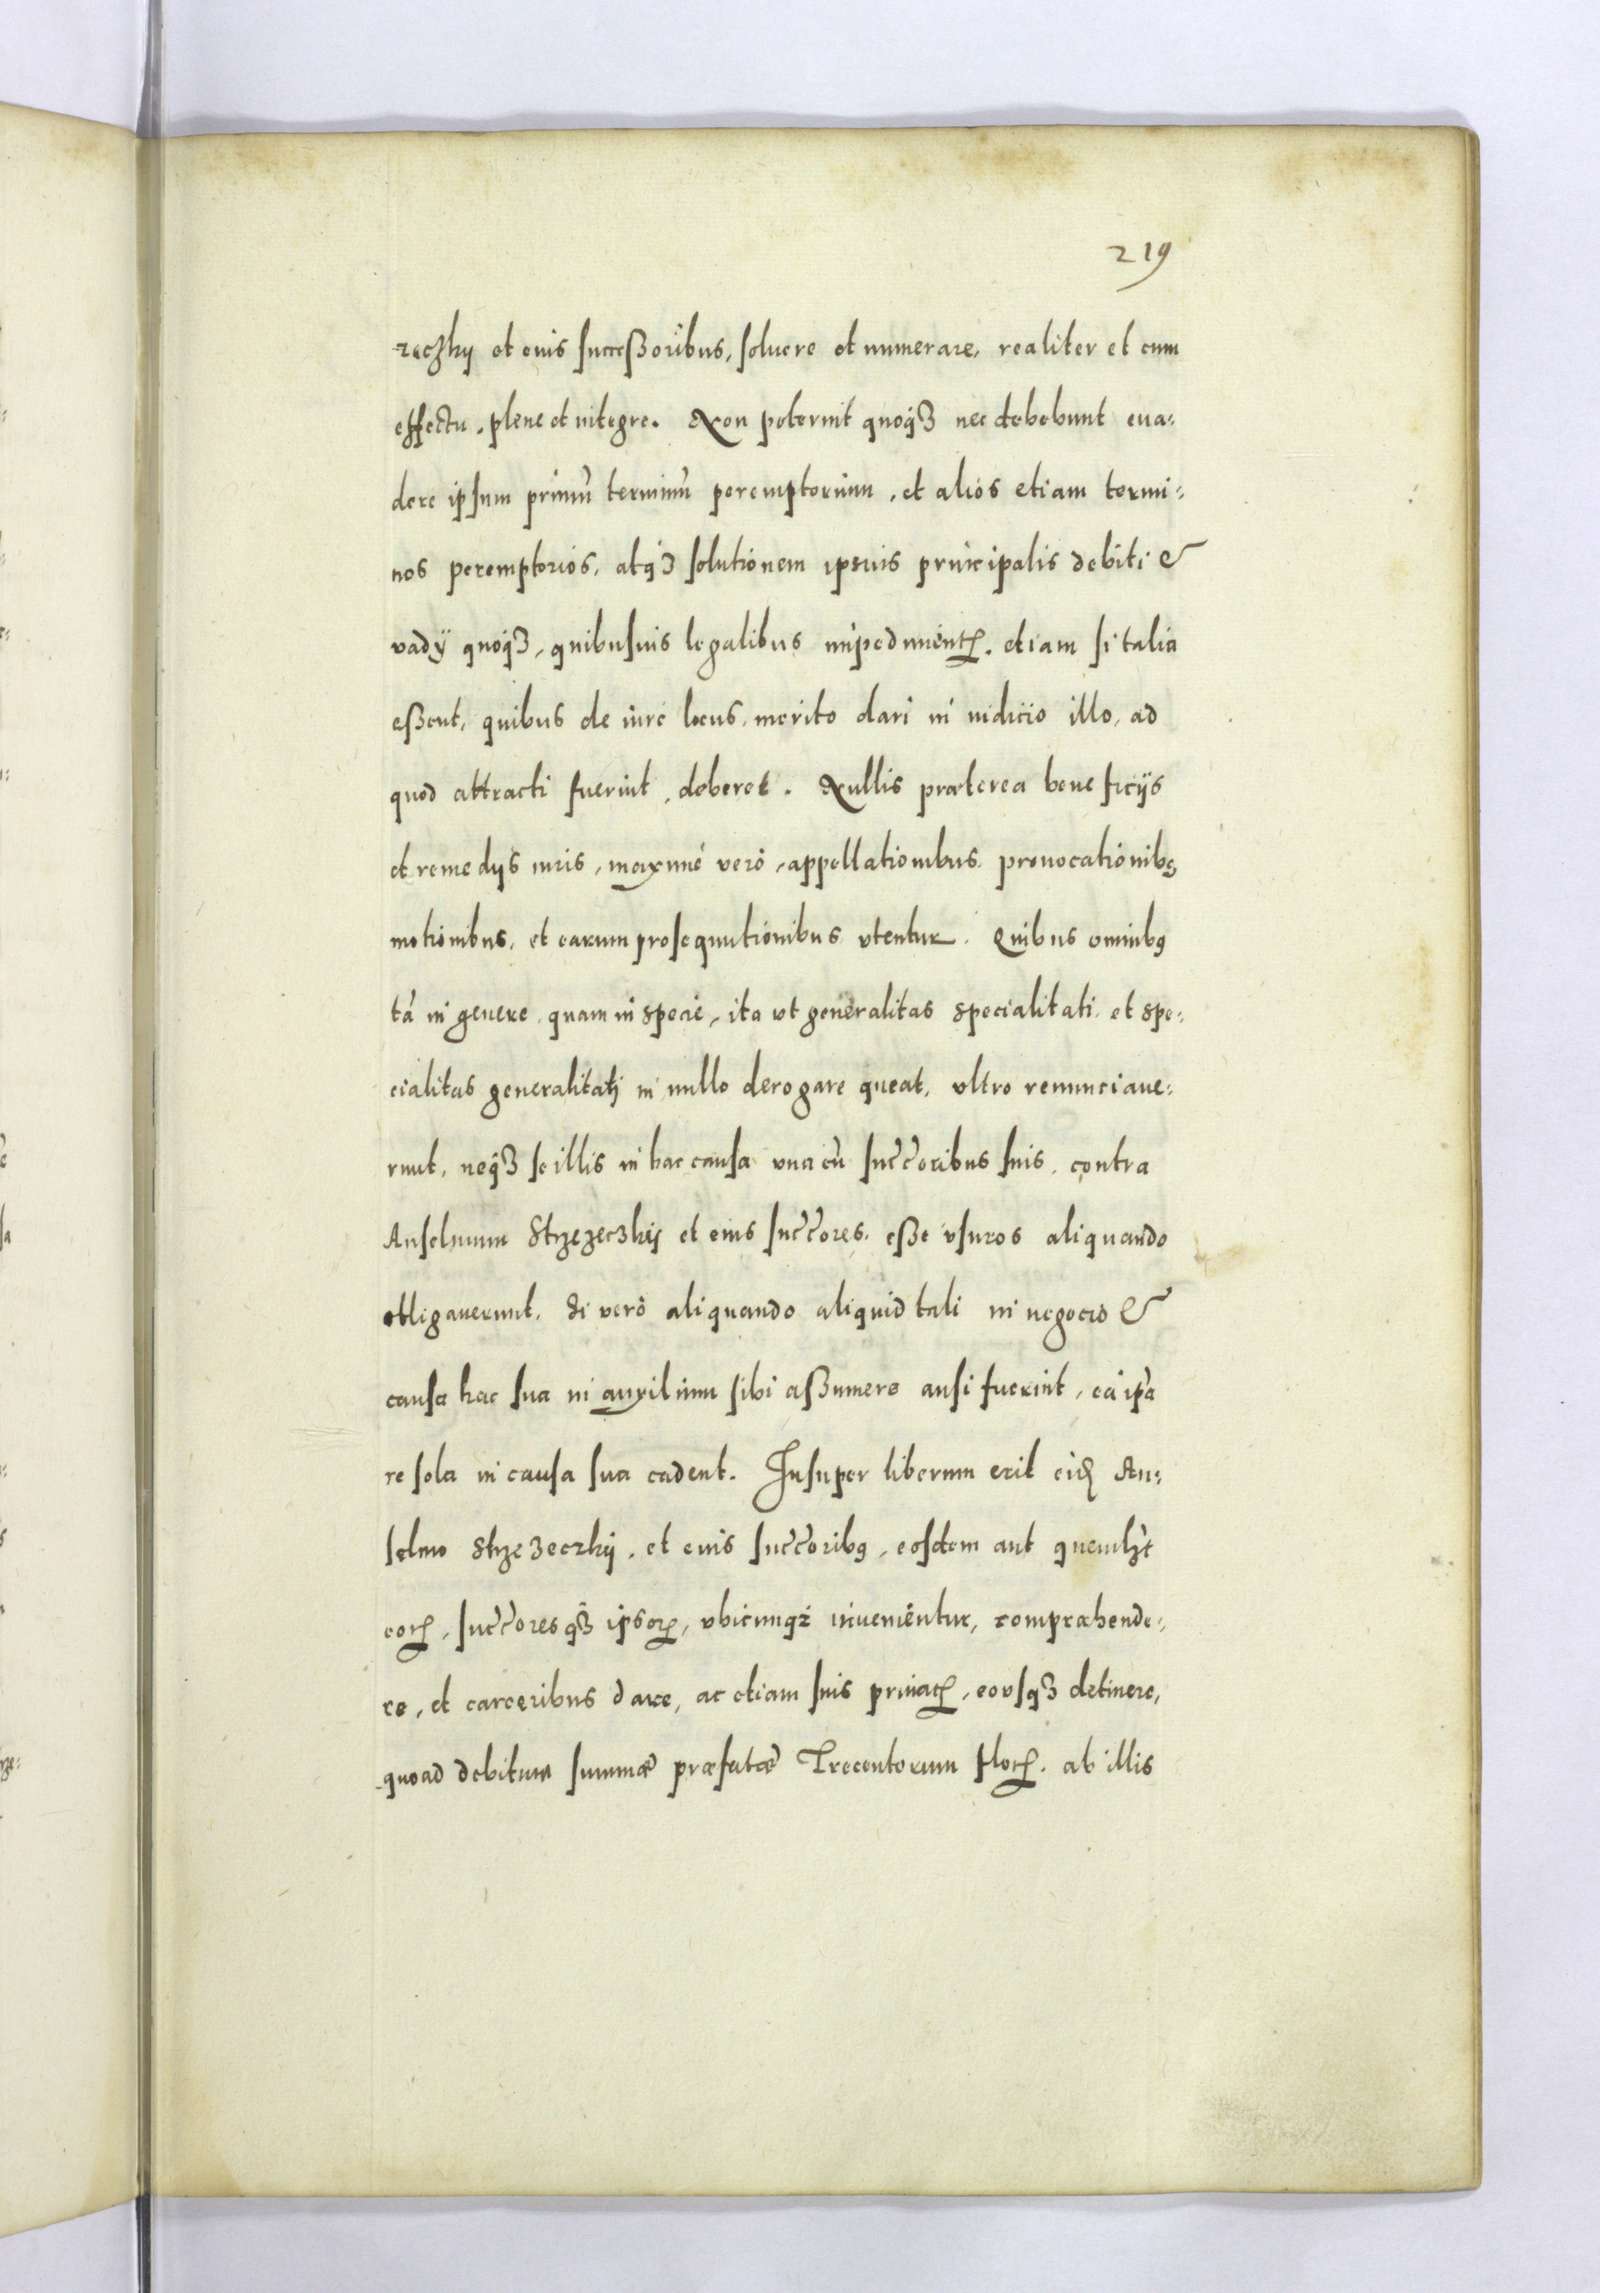 219
zeczkij et eius successoribus, soluere et numerare, realiter et cum
effectu, plene et integre. Non poterint quoqȝ nec debebunt eua-
dere ipsum primũ terminũ peremptorium, et alios etiam termi-
nos peremptorios, atqȝ solutionem ipsius principalis debiti &
vadÿ quoqȝ, quibusuis legalibus impedimentꝭ, etiam si talia
essent, quibus de iure locus, merito dari in iudicio illo, ad
quod attracti fuerint, deberet. Nullis præterea beneficijs
et remedijs iuris, maxime verò, appellationibus, prouocationibꝰ
motionibus, et earum prosequutionibus utentur. Quibus omnibꝰ
tã in genere, quam in specie, ita vt generalitas specialitati, et spe-
cialitas generalitati in nullo derogare queat, vltro renunciaue-
runt, neqȝ se illis in hac causa vna cũ succ̃oribus suis, contra
Anselmum Strzezeczkij et eius succ̃ores, esse vsuros aliquando
obligauerunt. Si verò aliquando aliquid tali in negocio &
causa hac sua in auxilium sibi assumere ausi fuerint, ea ip̃a
re sola in causa sua cadent. Insuper liberum erit eidꝫ An-
selmo Strzezeczkij, et eius succ̃oribꝰ, eosdem aut quemlꝫt
eorꝫ, succ̃ores qȝ ipsorꝫ, vbicunqꝫ inuenientur, compræhende-
re, et carceribus dare, ac etiam suis priuatꝭ, eousqȝ detinere,
quoad debitum summæ præfatæ Trecentorum florꝫ. ab illis